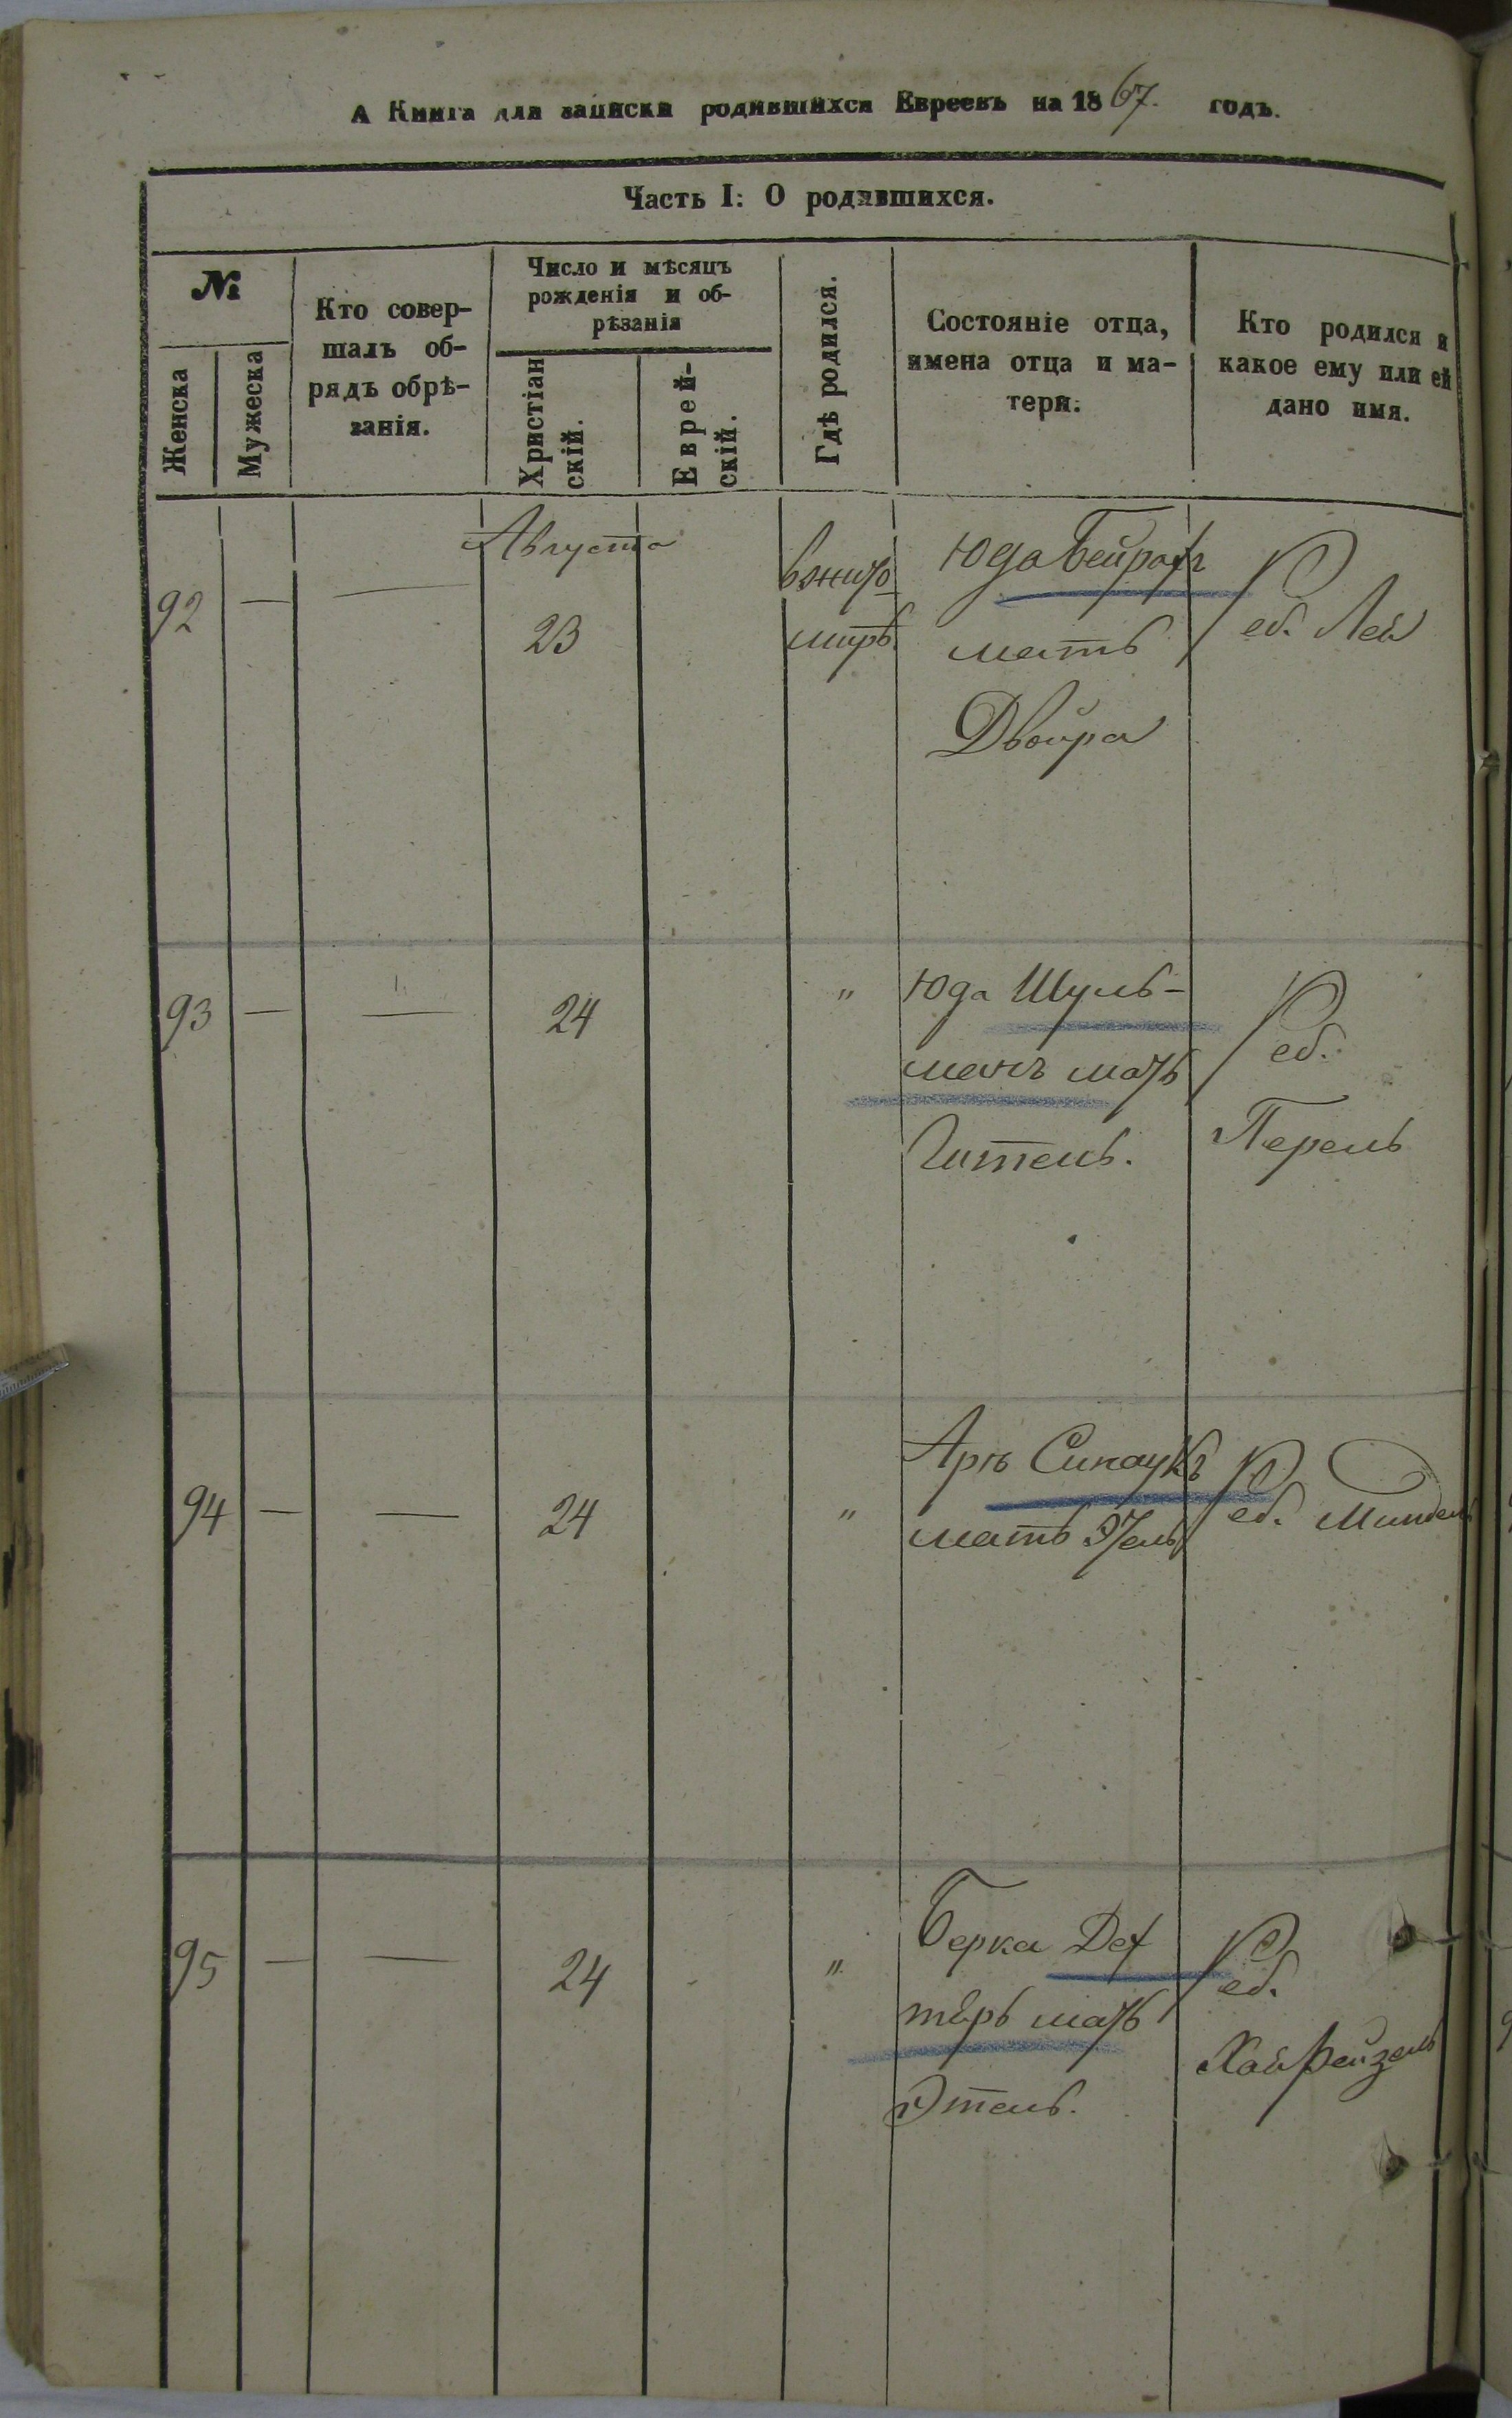 А Книга для записки родившихся Евреевъ на 1867. годъ.
Часть I: О родившихся.
№
Женска
Мужеска
Кто совер-
шалъ об-
рядъ обрѣ-
занія.
Число и мѣсяцъ
рожденія и об-
рѣзанія
Христіан
скій.
Еврей-
скій.
Гдѣ родился.
Состояніе отца,
имена отца и ма-
тери.
Кто родился и
какое ему или ей
дано имя.
Августа
92 — — 23
вжито
миръ.
Юда
мать
Двойра
Реб. Лея
93 — — 24 "
Юда Шуль-
манъ мать
Гитель.
Реб.
Перель
94 — — 24 "
Арн
мать Этель
Реб. Миндель
95 — — 24 "
Берка Дех
тяръ мать
Этель.
Реб.
Хая Рейзель